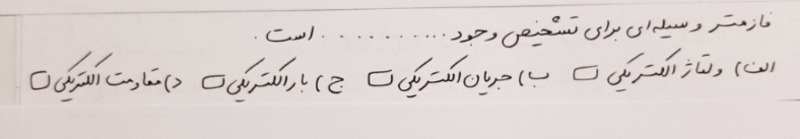 فازمتر وسیله‌ای برای تشخیص وجود .......... است.
الف) ولتاژ الکتریکی □ ب) جریان الکتریکی □ ج) بار الکتریکی □ د) مقاومت الکتریکی □